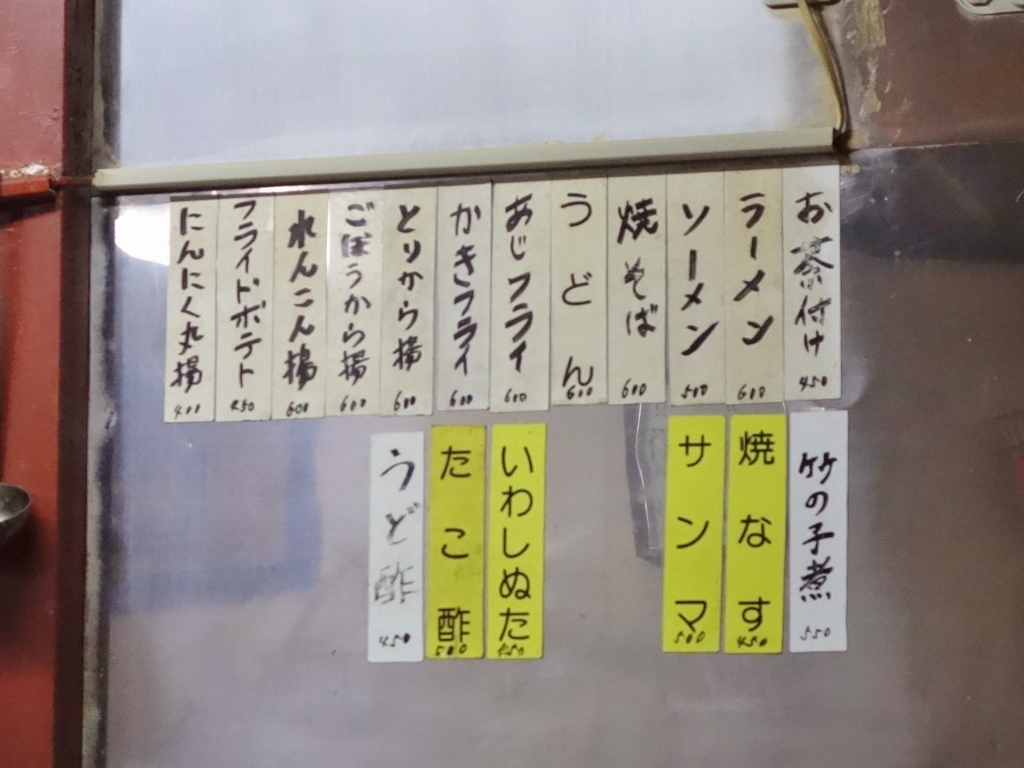 お茶付け 450
ラーメン 600
ソーメン 500
焼そば 600
うどん 600
あじフライ 600
かきフライ 600
とりから揚 600
ごぼうから揚 600
れんこん揚 600
フライドポテト 450
にんにく丸揚 400
竹の子煮 550
焼なす 450
サンマ 500
いわしぬた 450
たこ酢 500
うど酢 450